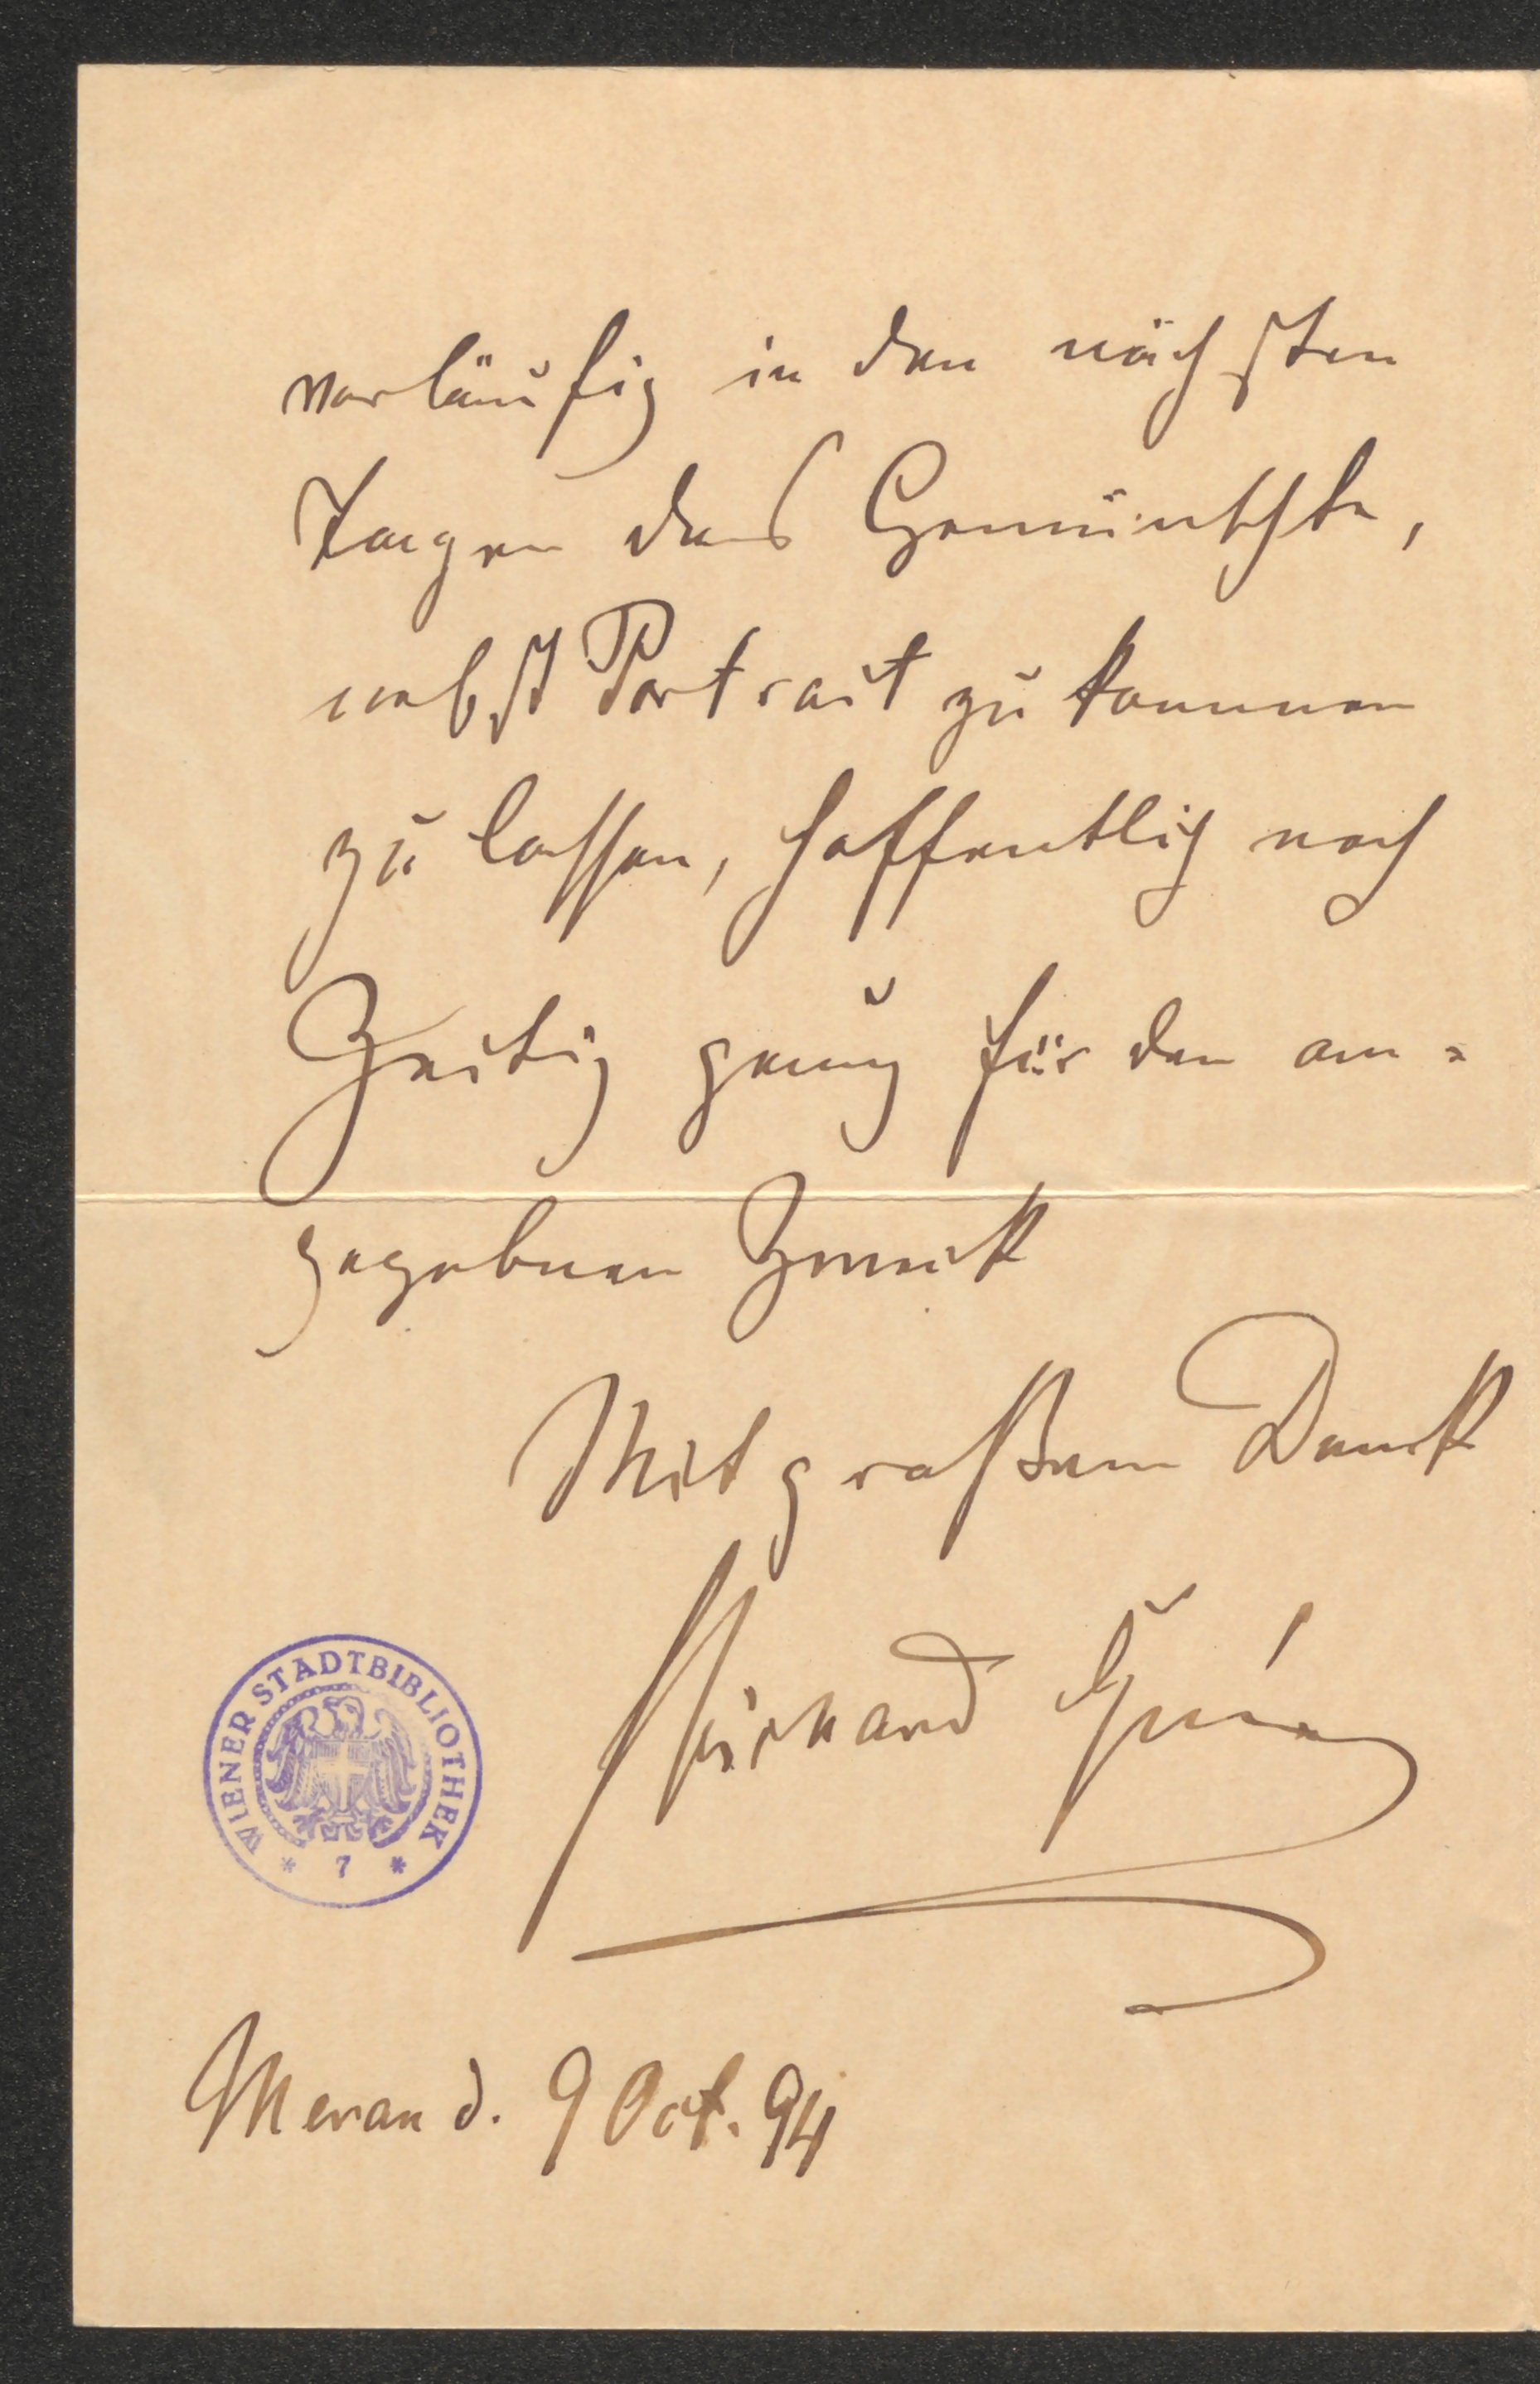 vorläufig in den nächsten
Tagen das Gewünschte,
nebst Portrait zu kommen
zu lassen, hoffentlich noch
Zeitig genug für den an=
gegebnen Zweck
Mit großem Dank
WIENER STADTBIBLIOTHEK
* 7 *
Meran d. 9 Oct. 94